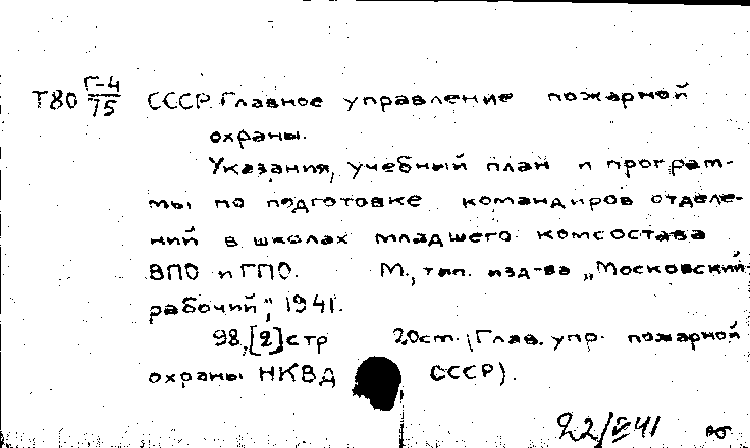 Т80 Г-4/75 СССР. Главное управление пожарной
охраны.
Указания, учебный план и програм-
мы по подготовке командиров отделе-
ний в школах младшего комсостава
ВПО и ГПО. М., тип. изд-ва „Московский
рабочий", 1941.
98,[2]стр 20см. (Глав. упр. пожарной
охраны НКВД СССР).
22/III 41